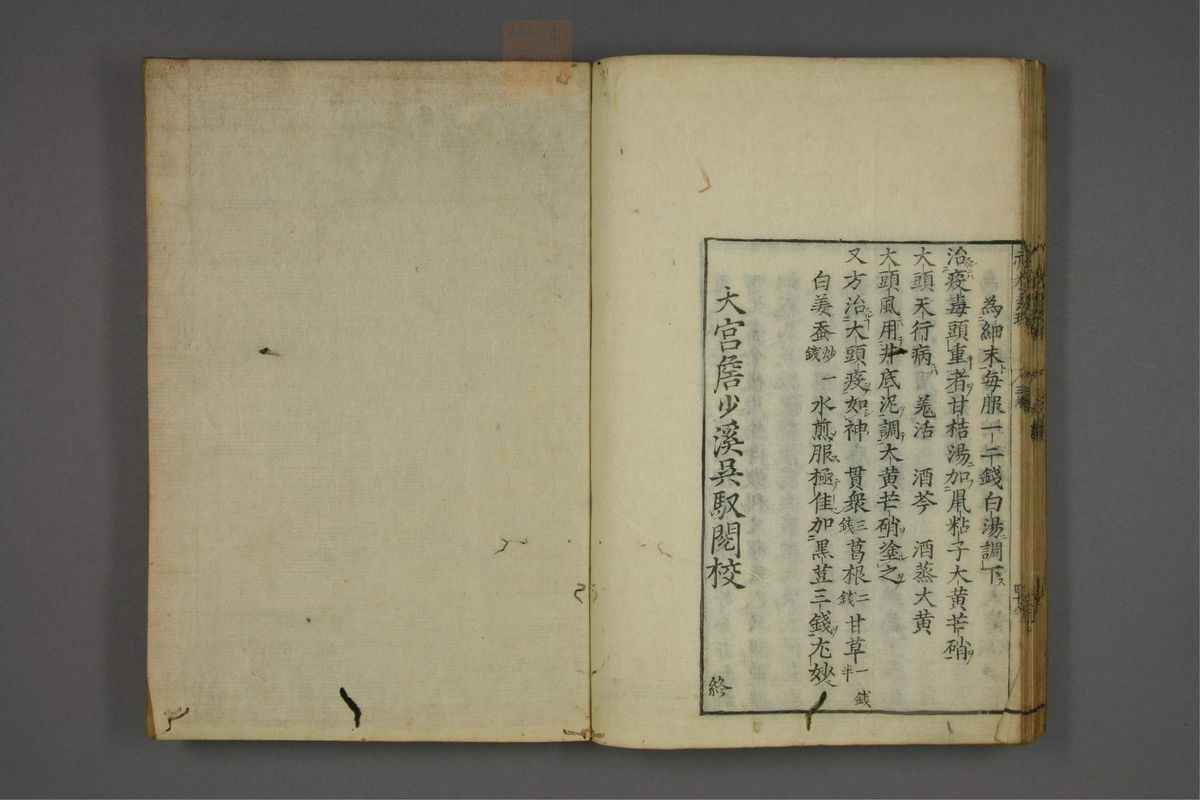 為細末每服一二錢白湯調下
治疫毒頭重者甘桔湯加鼠粘子大黄芒硝
大頭天行病 羗活 酒芩 酒蒸大黄
大頭風用井底泥調大黄芒硝塗之
又方治大頭疫如神 貫衆三錢 葛根二錢 甘草一錢半
白姜蚕炒一錢 水煎服極佳加黒荳三錢尤妙
大宫詹少溪吴馭閲校
終